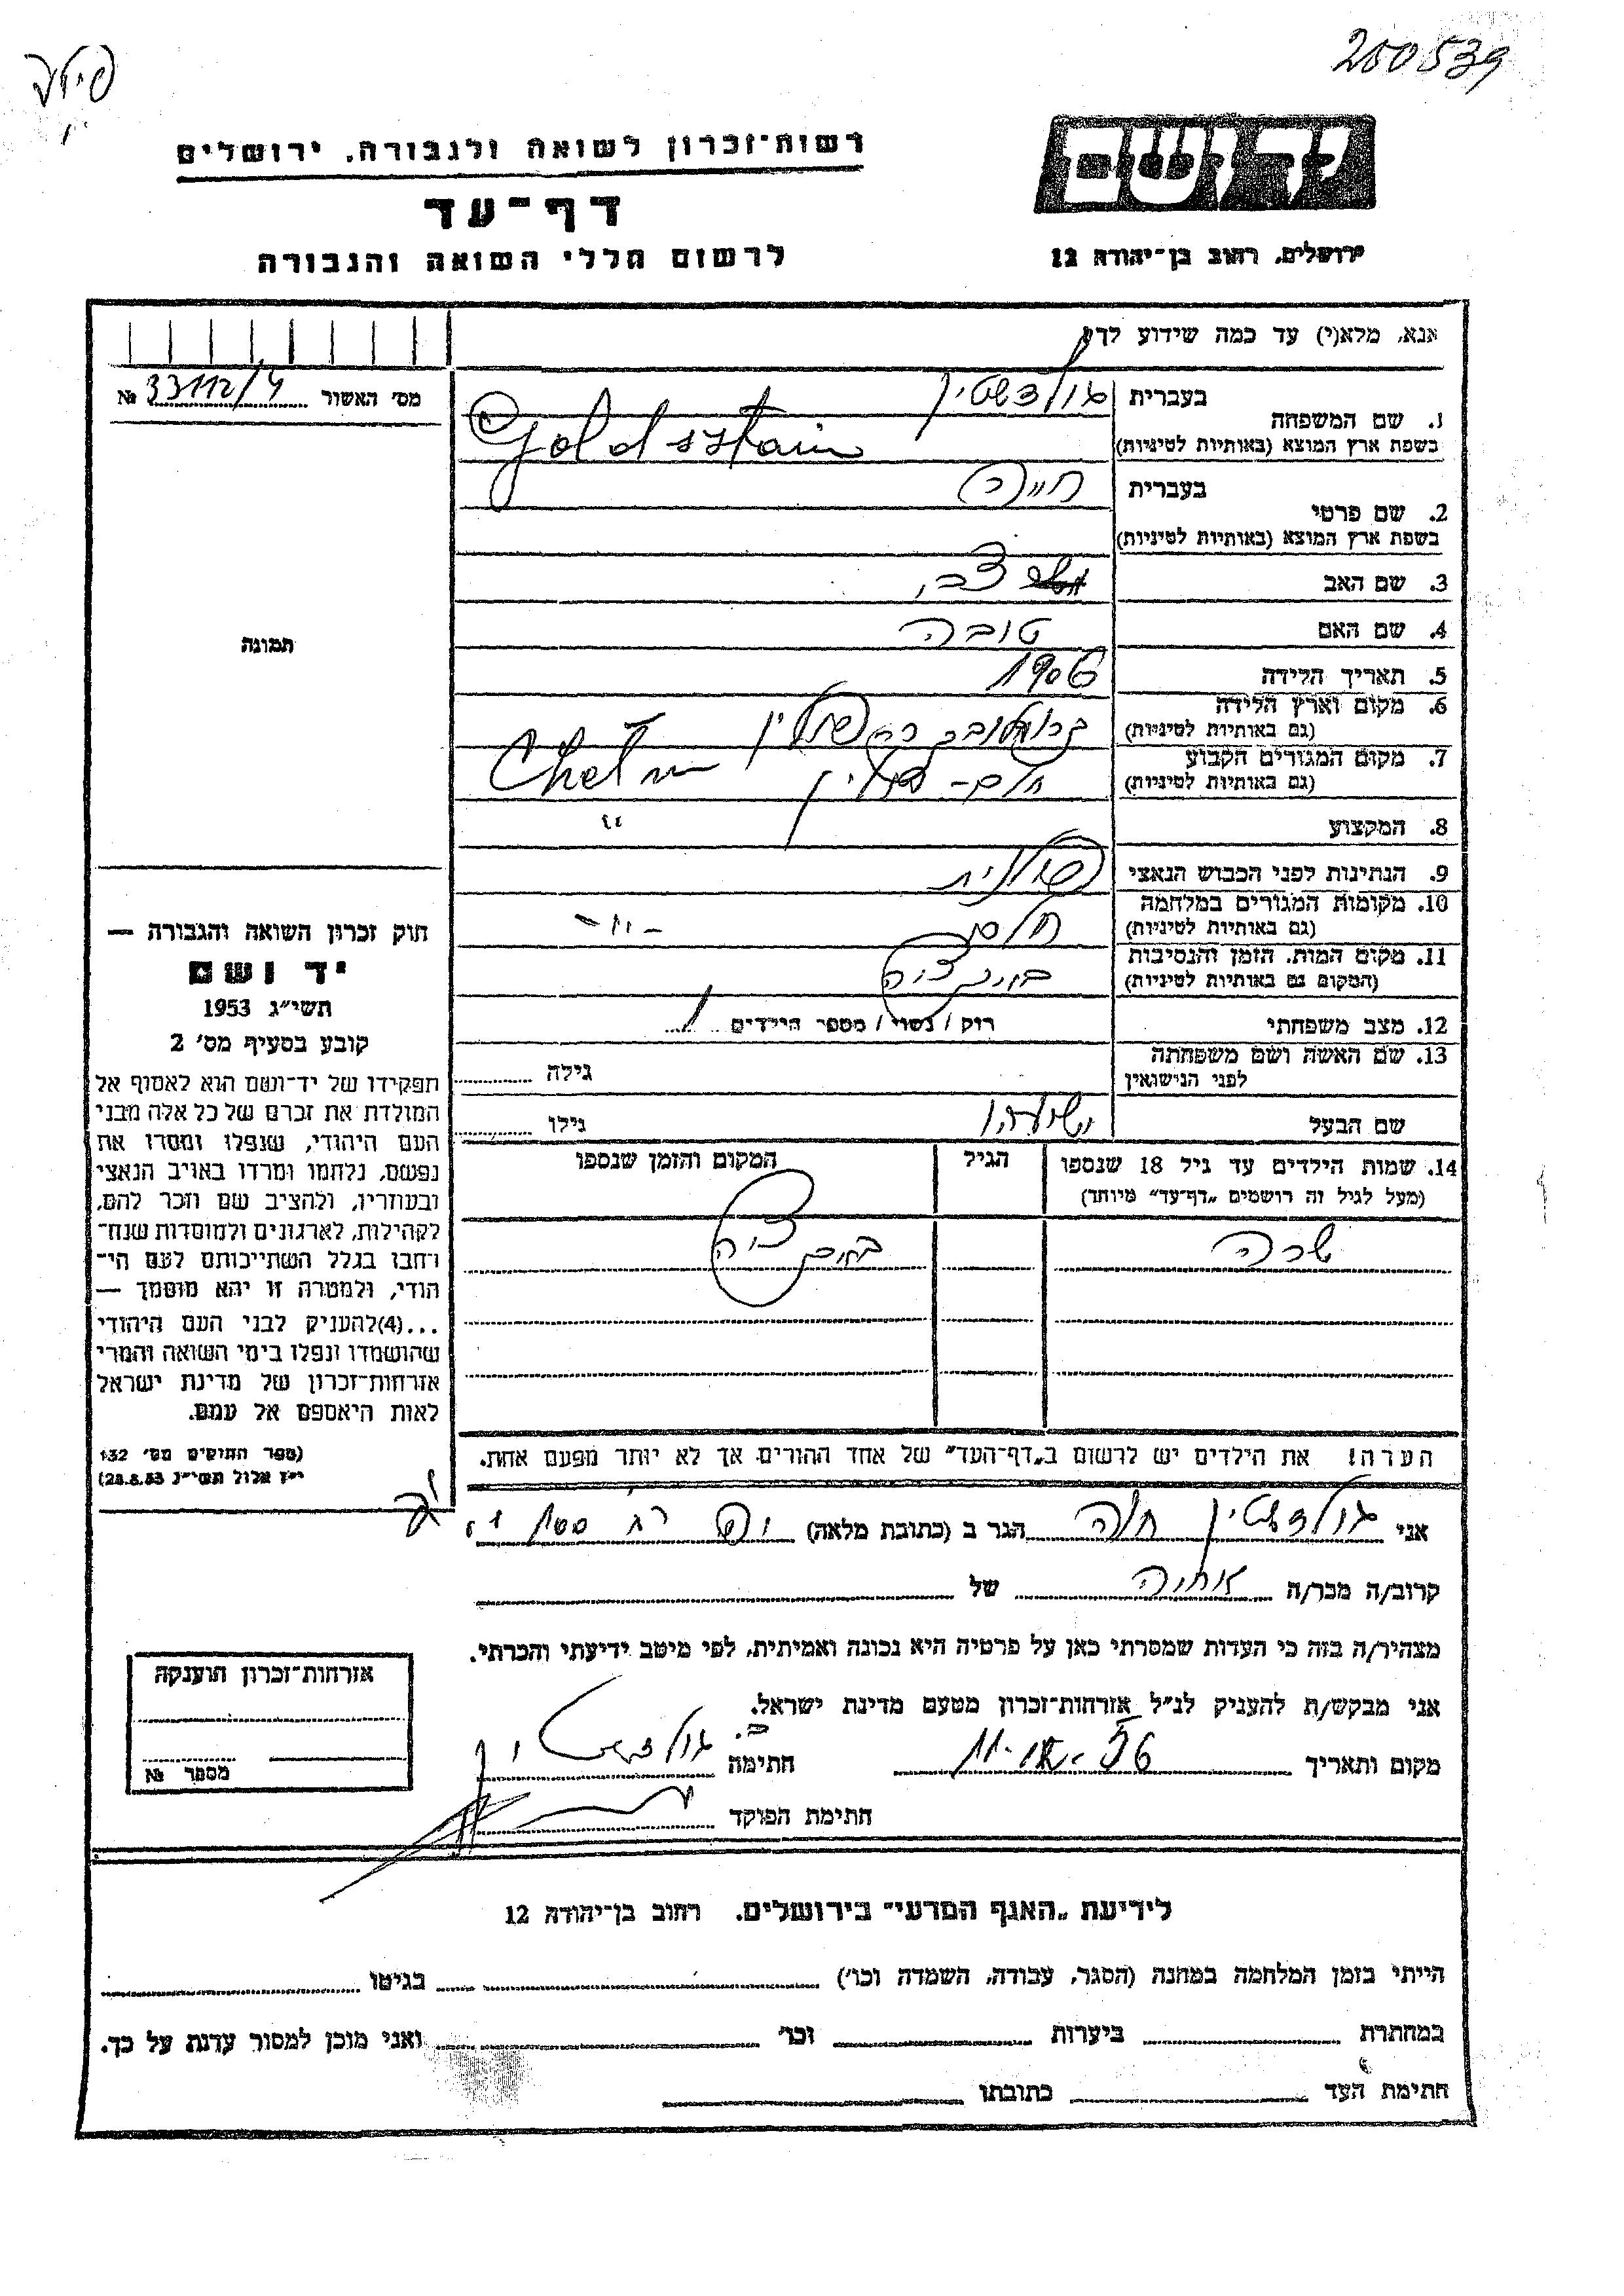 200539
יד ושם
רשות־זכרון לשואה ולגבורה, ירושלים
דף־עד
לרשום חללי השואה והגבורה
ירושלים, רחוב בן־יהודה 12
אנא, מלא(י) עד כמה שידוע לך
מס׳ האשור 33112/4 №
1. שם המשפחה
בעברית גולדשטיין
בשפת ארץ המוצא (באותיות לטיניות) Goldsztain
2. שם פרטי
בעברית חייה
בשפת ארץ המוצא (באותיות לטיניות)
3. שם האב צבי
4. שם האם טובה
5. תאריך הלידה 1906
6. מקום וארץ הלידה
(גם באותיות לטיניות)
7. מקום המגורים הקבוע חלם - פולין Chełm
(גם באותיות לטיניות)
8. המקצוע "
9. הנתינות לפני הכבוש הנאצי פולנית
10. מקומות המגורים במלחמה חלם -"-
(גם באותיות לטיניות)
11. מקום המות, הזמן והנסיבות
(המקום גם באותיות לטיניות)
12. מצב משפחתי רוק / נשוי / מספר הילדים 1
13. שם האשה ושם משפחתה
לפני הנישואין
גילה
שם הבעל ישעיהו גילו
14. שמות הילדים עד גיל 18 שנספו
(מעל לגיל זה רושמים „דף־עד״ מיוחד)
הגיל
המקום והזמן שנספו
שרה
הערה! את הילדים יש לרשום ב„דף־העד״ של אחד ההורים אך לא יותר מפעם אחת.
תמונה
חוק זכרון השואה והגבורה —
יד ושם
תשי״ג 1953
קובע בסעיף מס׳ 2
תפקידו של יד־ושם הוא לאסוף אל
המולדת את זכרם של כל אלה מבני
העם היהודי, שנפלו ומסרו את
נפשם, נלחמו ומרדו באויב הנאצי
ובעוזריו, ולהציב שם וזכר להם,
לקהילות, לארגונים ולמוסדות שנח־
רבו בגלל השתייכותם לעם הי־
הודי, ולמטרה זו יהא מוסמך —
...(4)להעניק לבני העם היהודי
שהושמדו ונפלו בימי השואה והמרי
אזרחות־זכרון של מדינת ישראל
לאות היאספם אל עמם.
(ספר החוקים מס׳ 132
י״ז אלול תשי״ג 28.8.53)
אני גולדשטיין חוה הגר ב (כתובת מלאה)
קרוב/ה מכר/ה אחיה של
מצהיר/ה בזה כי העדות שמסרתי כאן על פרטיה היא נכונה ואמיתית, לפי מיטב ידיעתי והכרתי.
אני מבקש/ת להעניק לנ״ל אזרחות־זכרון מטעם מדינת ישראל.
מקום ותאריך 56 חתימה גולדשטיין
חתימת הפוקד
אזרחות־זכרון הוענקה
מספר №
לידיעת „האגף המדעי״ בירושלים, רחוב בן־יהודה 12
הייתי בזמן המלחמה במחנה (הסגר, עבודה, השמדה וכו׳) בגיטו
במחתרת ביערות וכו׳ ואני מוכן למסור עדות על כך.
חתימת העד כתובתו